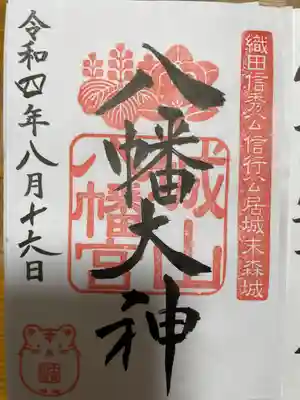 織田信秀公信行公居城末森城
八幡大神
城山
八幡宮
令和四年八月十六日